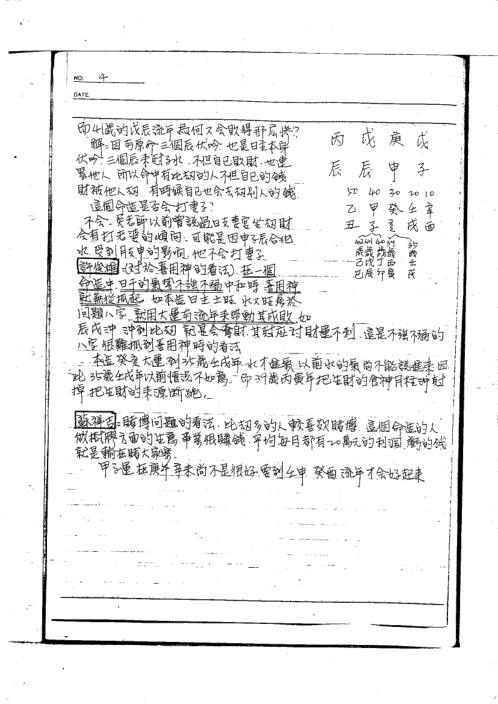 NO: 4
DATE:
而41歲的戊辰流年為何又会敗得那麽慘?
解:因為原命三個辰伏吟 也是日主本年
伏吟 三個辰來冠子水 不但自己敗財 也連
累他人 所以命中有比劫的人不但自己的錢
財被他人劫 有時候自己也会去劫別人的錢
這個命造是否会打妻子?
不会 吳老師以前曾強過日支坐劫財
会有打老婆的傾向 可能是因申子辰合化
水 受到月支申的影响 他不会打妻子
許俊雄:(对於喜用神的看法) 在一個
命造中 日干的氣勢不強不弱中和時 喜用神
就較难抓起 如本造日主土旺 水又旺 屬於
問題八字 就用大運与流年來帶動其成敗 如
辰戌沖 沖到比劫 就是会奪財 其冠应对財運不利 這是不強不弱的
八字 很難抓到喜用神時的看法
本造癸亥大運到35歲壬戌年 水才進氣 以前水的氣尚不能說進來 因
此35歲壬戌年以前情況不如意 而39歲丙寅年把生財的食神月柱沖尅
掉 把生財的來源斷絕。
蘇祥吉:賭博問題的看法 比劫多的人較喜欢賭博 這個命造的人
做樹脂方面的生意 事業很賺錢 平均每月都有20萬元的利潤 虧的錢
就是輸在賭大家樂
甲子運 在庚午辛未尚不是很好 要到壬申 癸酉流年才会好起來
丙 戊 庚 戊
辰 辰 申 子
50 40 30 20 10
乙 甲 癸 壬 辛
丑 子 亥 戌 酉
42 41 40 39 35
歲歲歲歲 歲
己戊丁丙 壬
巳辰卯寅 戌